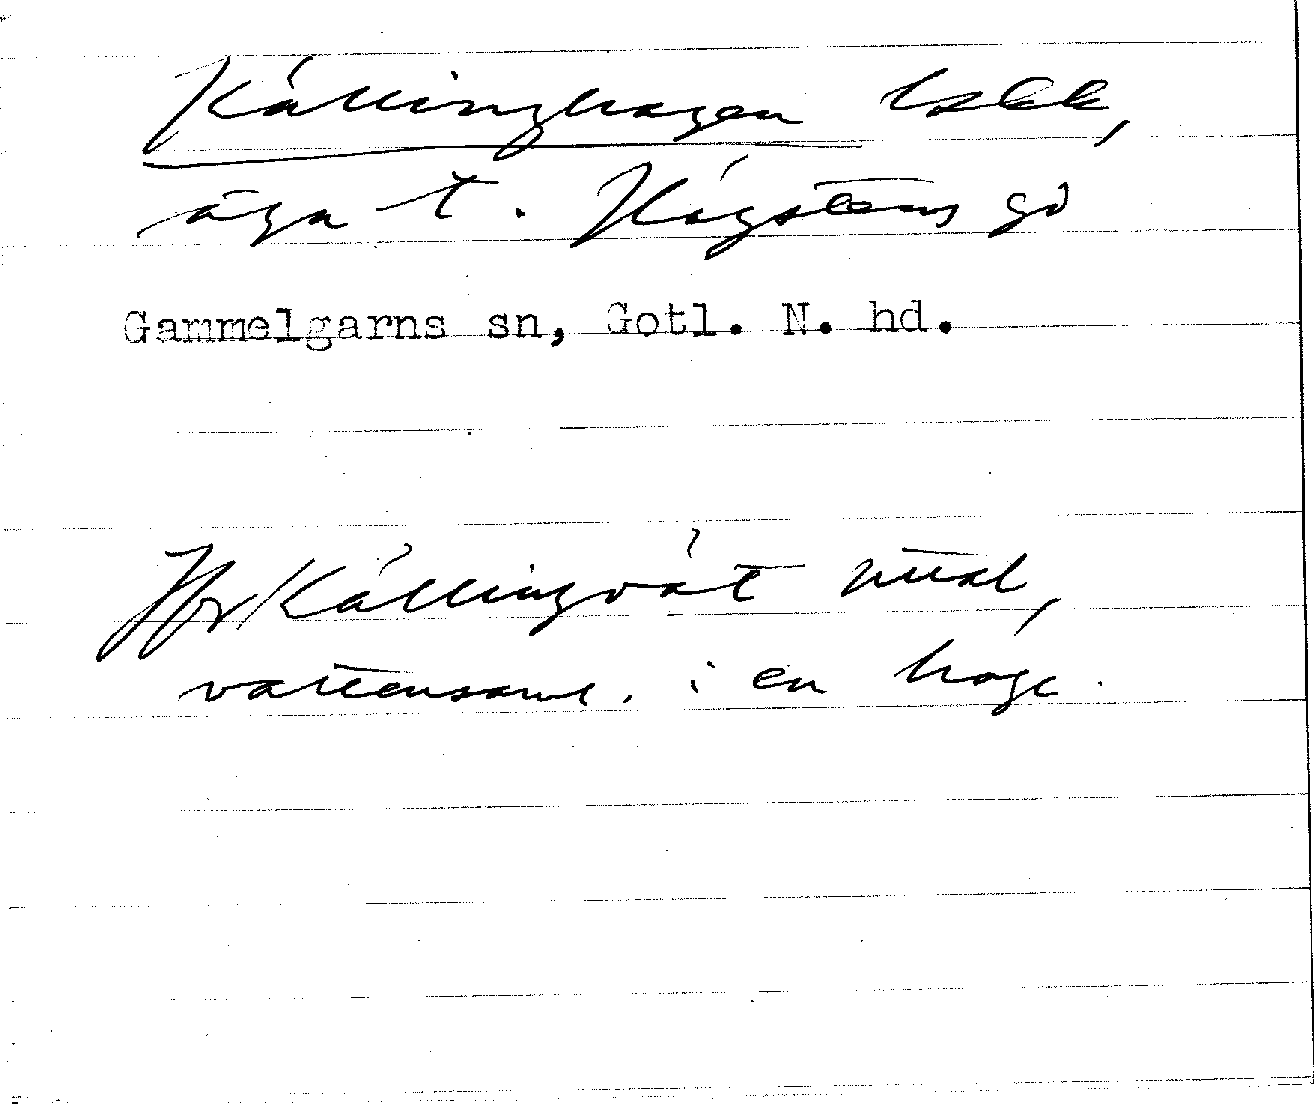 Källinghagen bskk,
äga t. Högstens gd
Gammelgarns sn, Gotl. N. hd.
Jfr Källingvät
vattensaml. i en hage.